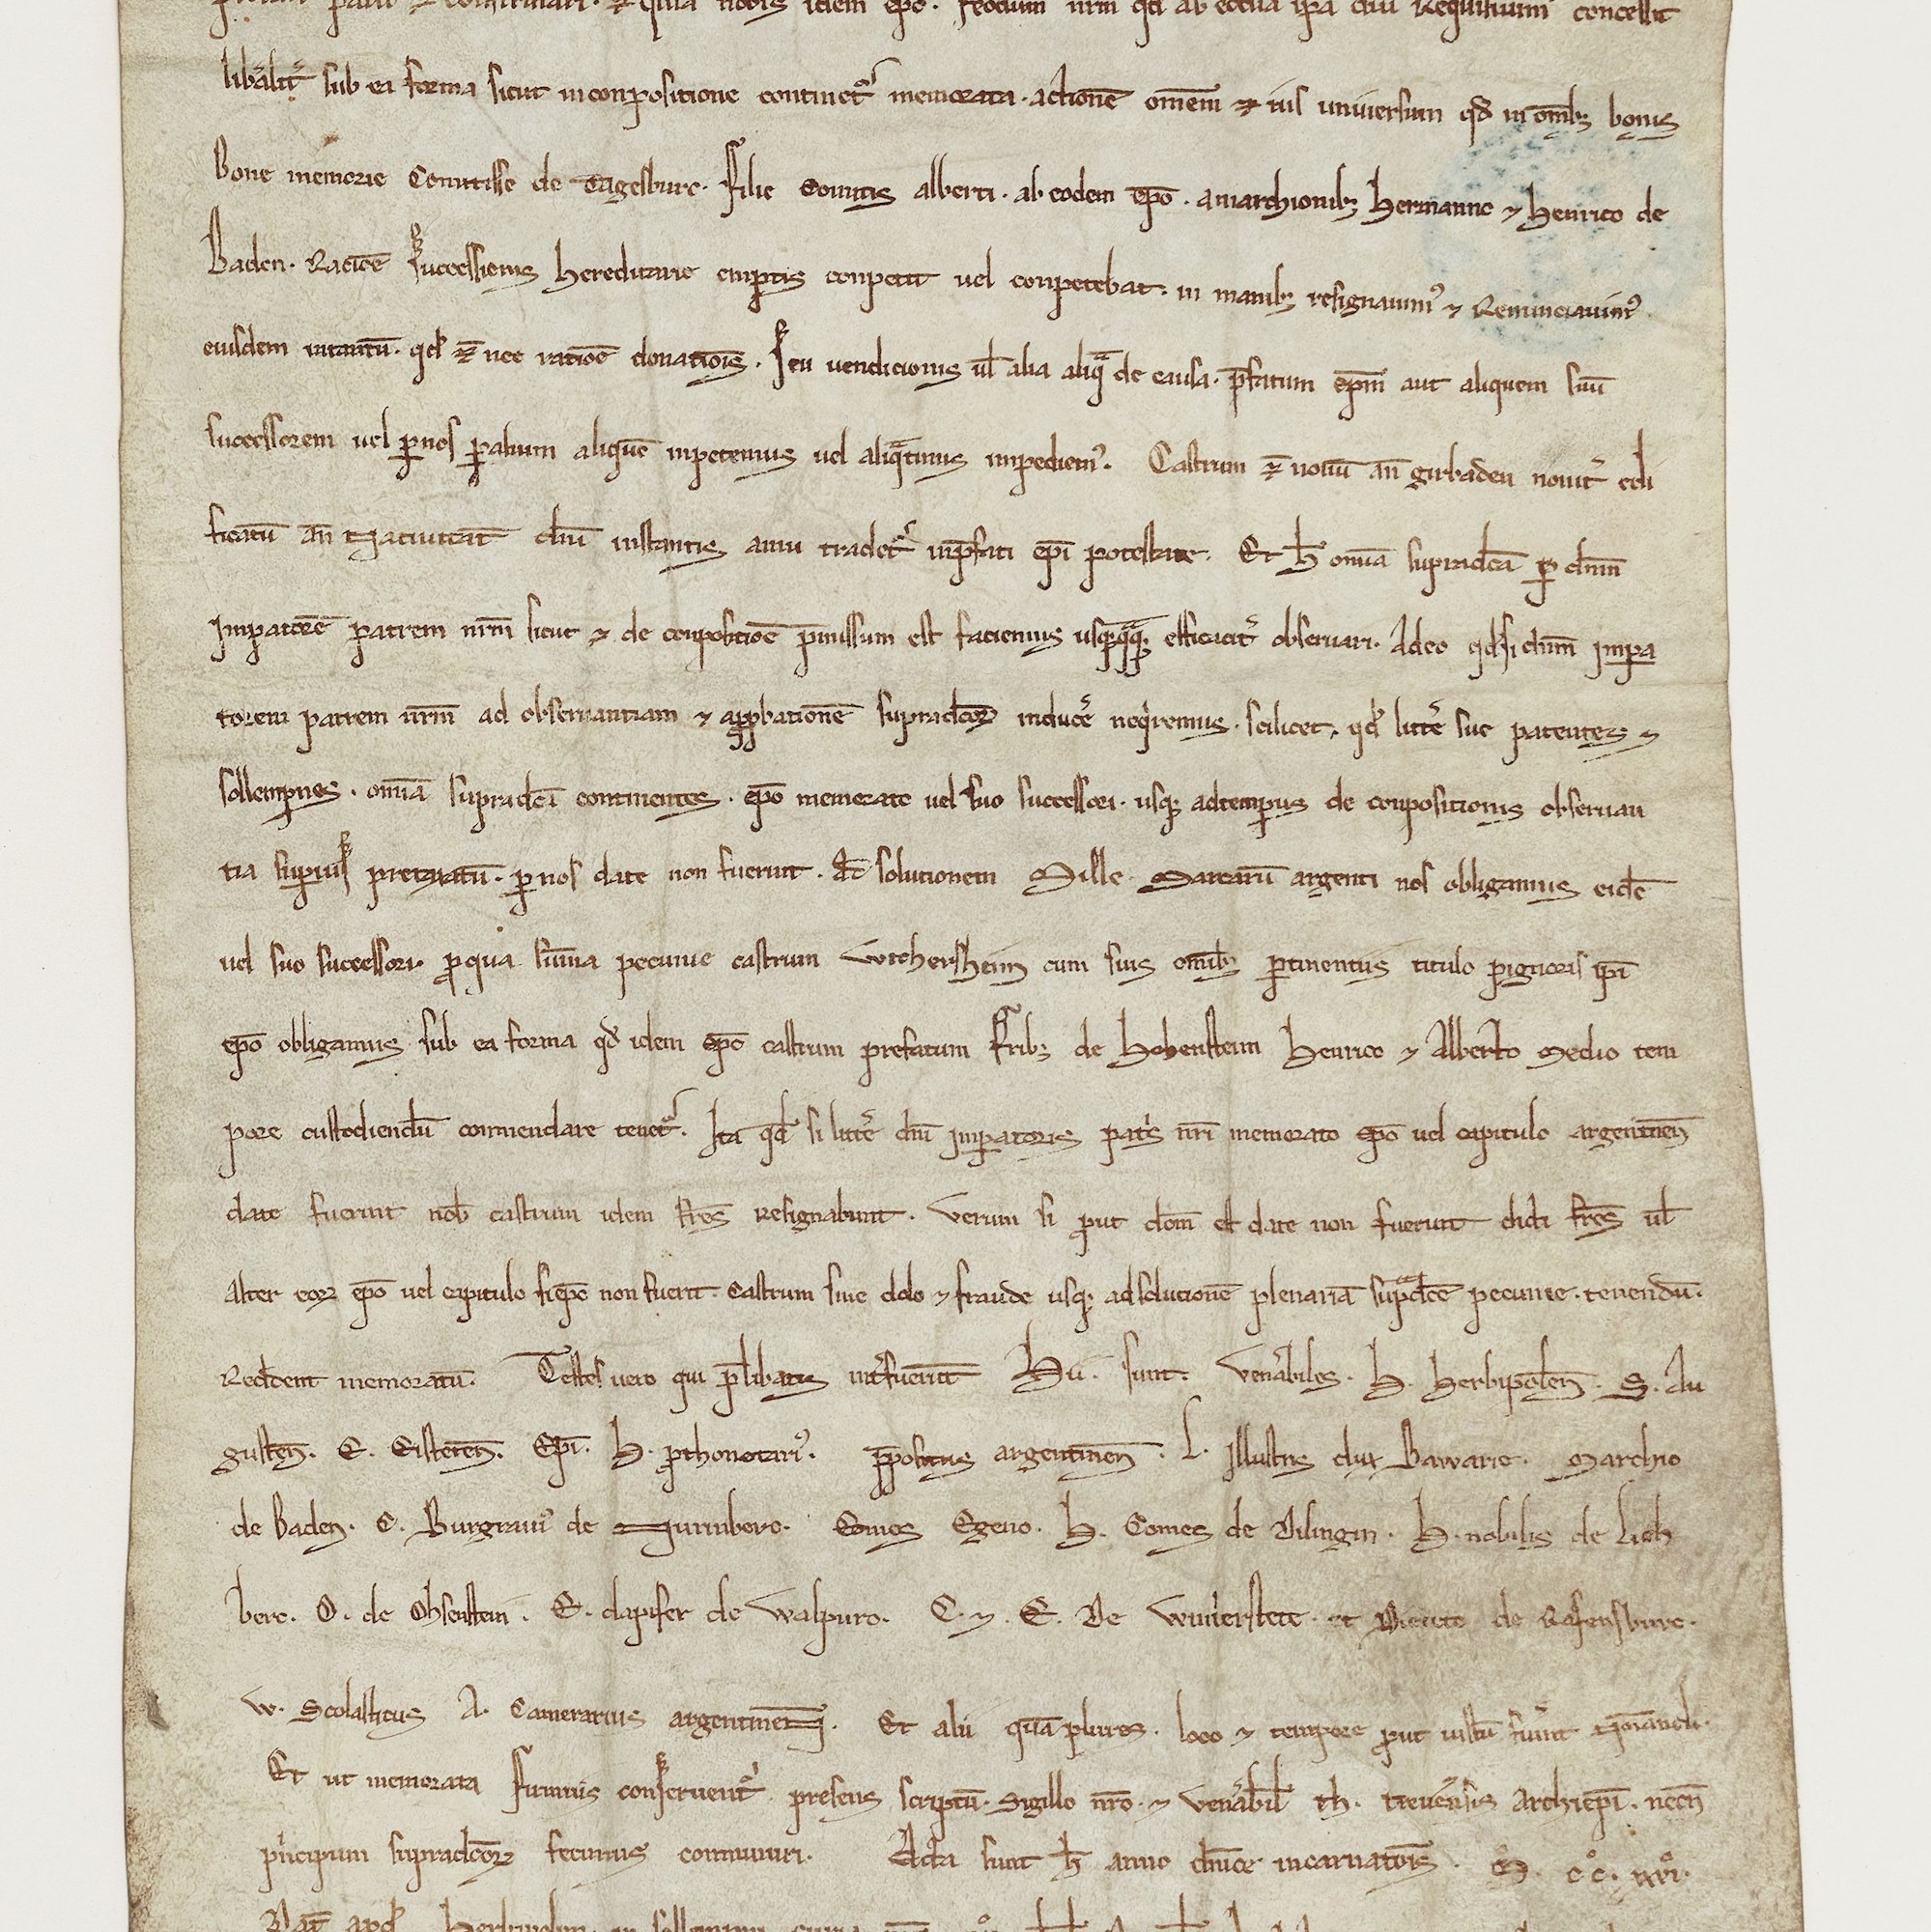 patri et confirmari. et quia nobis idem ep̄c. feodum nr̄m qd ab eccl̄ia ip̄a diu Requisitum concessit
lib̄alit̄ sub ea forma sicut in conpositione continet᷑ memorata. actionē om̄em et ius uniuersum qd̄ in om̄ib; bonis
bone memorie Comitisse de Tagesburc. Filie Comitis alberti. ab eodem ep̄o. a marchionib; hermanno et henrico de
Baden. Racōe successionis hereditarie emptis conpetit uel conpetebat. in manib; resignauim᷒ et Renunciauim᷒
eiusdem intantū. qd̄ nec ratiōe donatiōis. seu uendicionis ul̄ alia aliqᵃ de causa. p̄fatum ep̄m aut aliquem suū
successorem uel ꝑ nos ꝑ alium aliquē inpetemus uel aliqᵃtinus impediem᷒. Castrum nouū an̄ girbaden nouit̄ edi
ficatū an̄ Natiuitat̄ dn̄i instantis anni tradet᷑ in p̄fati ep̄i potestate. Et h̄ om̄ia supradc̄a ꝑ dn̄m
Imꝑatorē patrem nr̄m sicut et de conpositiōe p̄missum est faciemus usq; q̄q; efficacit̄ obseruari. Adeo qd̄ si dn̄m impa
torem patrem nr̄m ad obseruantiam et apꝓbationē supradc̄oꝝ inducē neq̇remus. scilicet. qd̄ litt̄e sue patentes et
sollempnes. om̄ia supradc̄a continentes. ep̄o memorato uel suo successori. usq; ad tempus de conpositionis obseruan
tia superius pretaxatū. ꝑ nos date non fuerint. Ad solutionem Mille Marcarū argenti nos obligamus eidē
uel suo successori. ꝓ qua sūma pecunie castrum wichersheim cum suis om̄ib; ꝑtinentiis titulo pignoris ip̄i
ep̄o obligamus sub ea forma qd̄ idem ep̄c castrum prefatum Fr̄ib; de Hohenstein Henrico et Alberto Medio tem
pore custodiendū commendare tenet᷑. Ita qd̄ si litt̄e dn̄i imperatoris pat̄s nr̄i memorato ep̄o uel capitulo argentinen̄
date fuerint nob̄ castrum idem fr̄es Resignabunt. Verum si ꝓut dc̄m est date non fuerint dicti fr̄es ul̄
alter eoꝝ ep̄o uel capitulo si ep̄c non fuerit. Castrum sine dolo et fraude usq; ad solutionē plenariā supᵃdc̄e pecunie. tenendū.
Reddent memoratū. Testes uero qui p̄libatis int̄fuerūt Hii. sunt. Ven̄abiles. H. Herbipolen̄. S. Au
gusten̄. E. Eisteten̄. Ep̄i. H. ꝓthonotari᷒. p̄positus argentinen̄. L. Illustris dux Bawarie. Marchio
de Baden. C. Burgraui᷒ de Nurinberc. Comes Egeno. H. Comes de Dilingin. H. nobilis de Lieh
berc. O. de Ohsenstein. E. dapifer de walpurc. C. et. E. De winterstete. et Dieto de Rafensburc.
W. Scolasticus A. Camerarius argentinen̄. Et alii quā plures. loco et tempore ꝓut iustū fuīt
Et ut memorata firmius conseruent᷑ presens scriptū. Sigillo nr̄o. et ven̄abil̄ th. treuerēsis Archiep̄i. necn̄
pͥncipum supradc̄oꝝ fecimus conmuniri. Acta sunt h̄ anno dn̄ice incarnatōis. M. c̊c̊. xxvi̊.